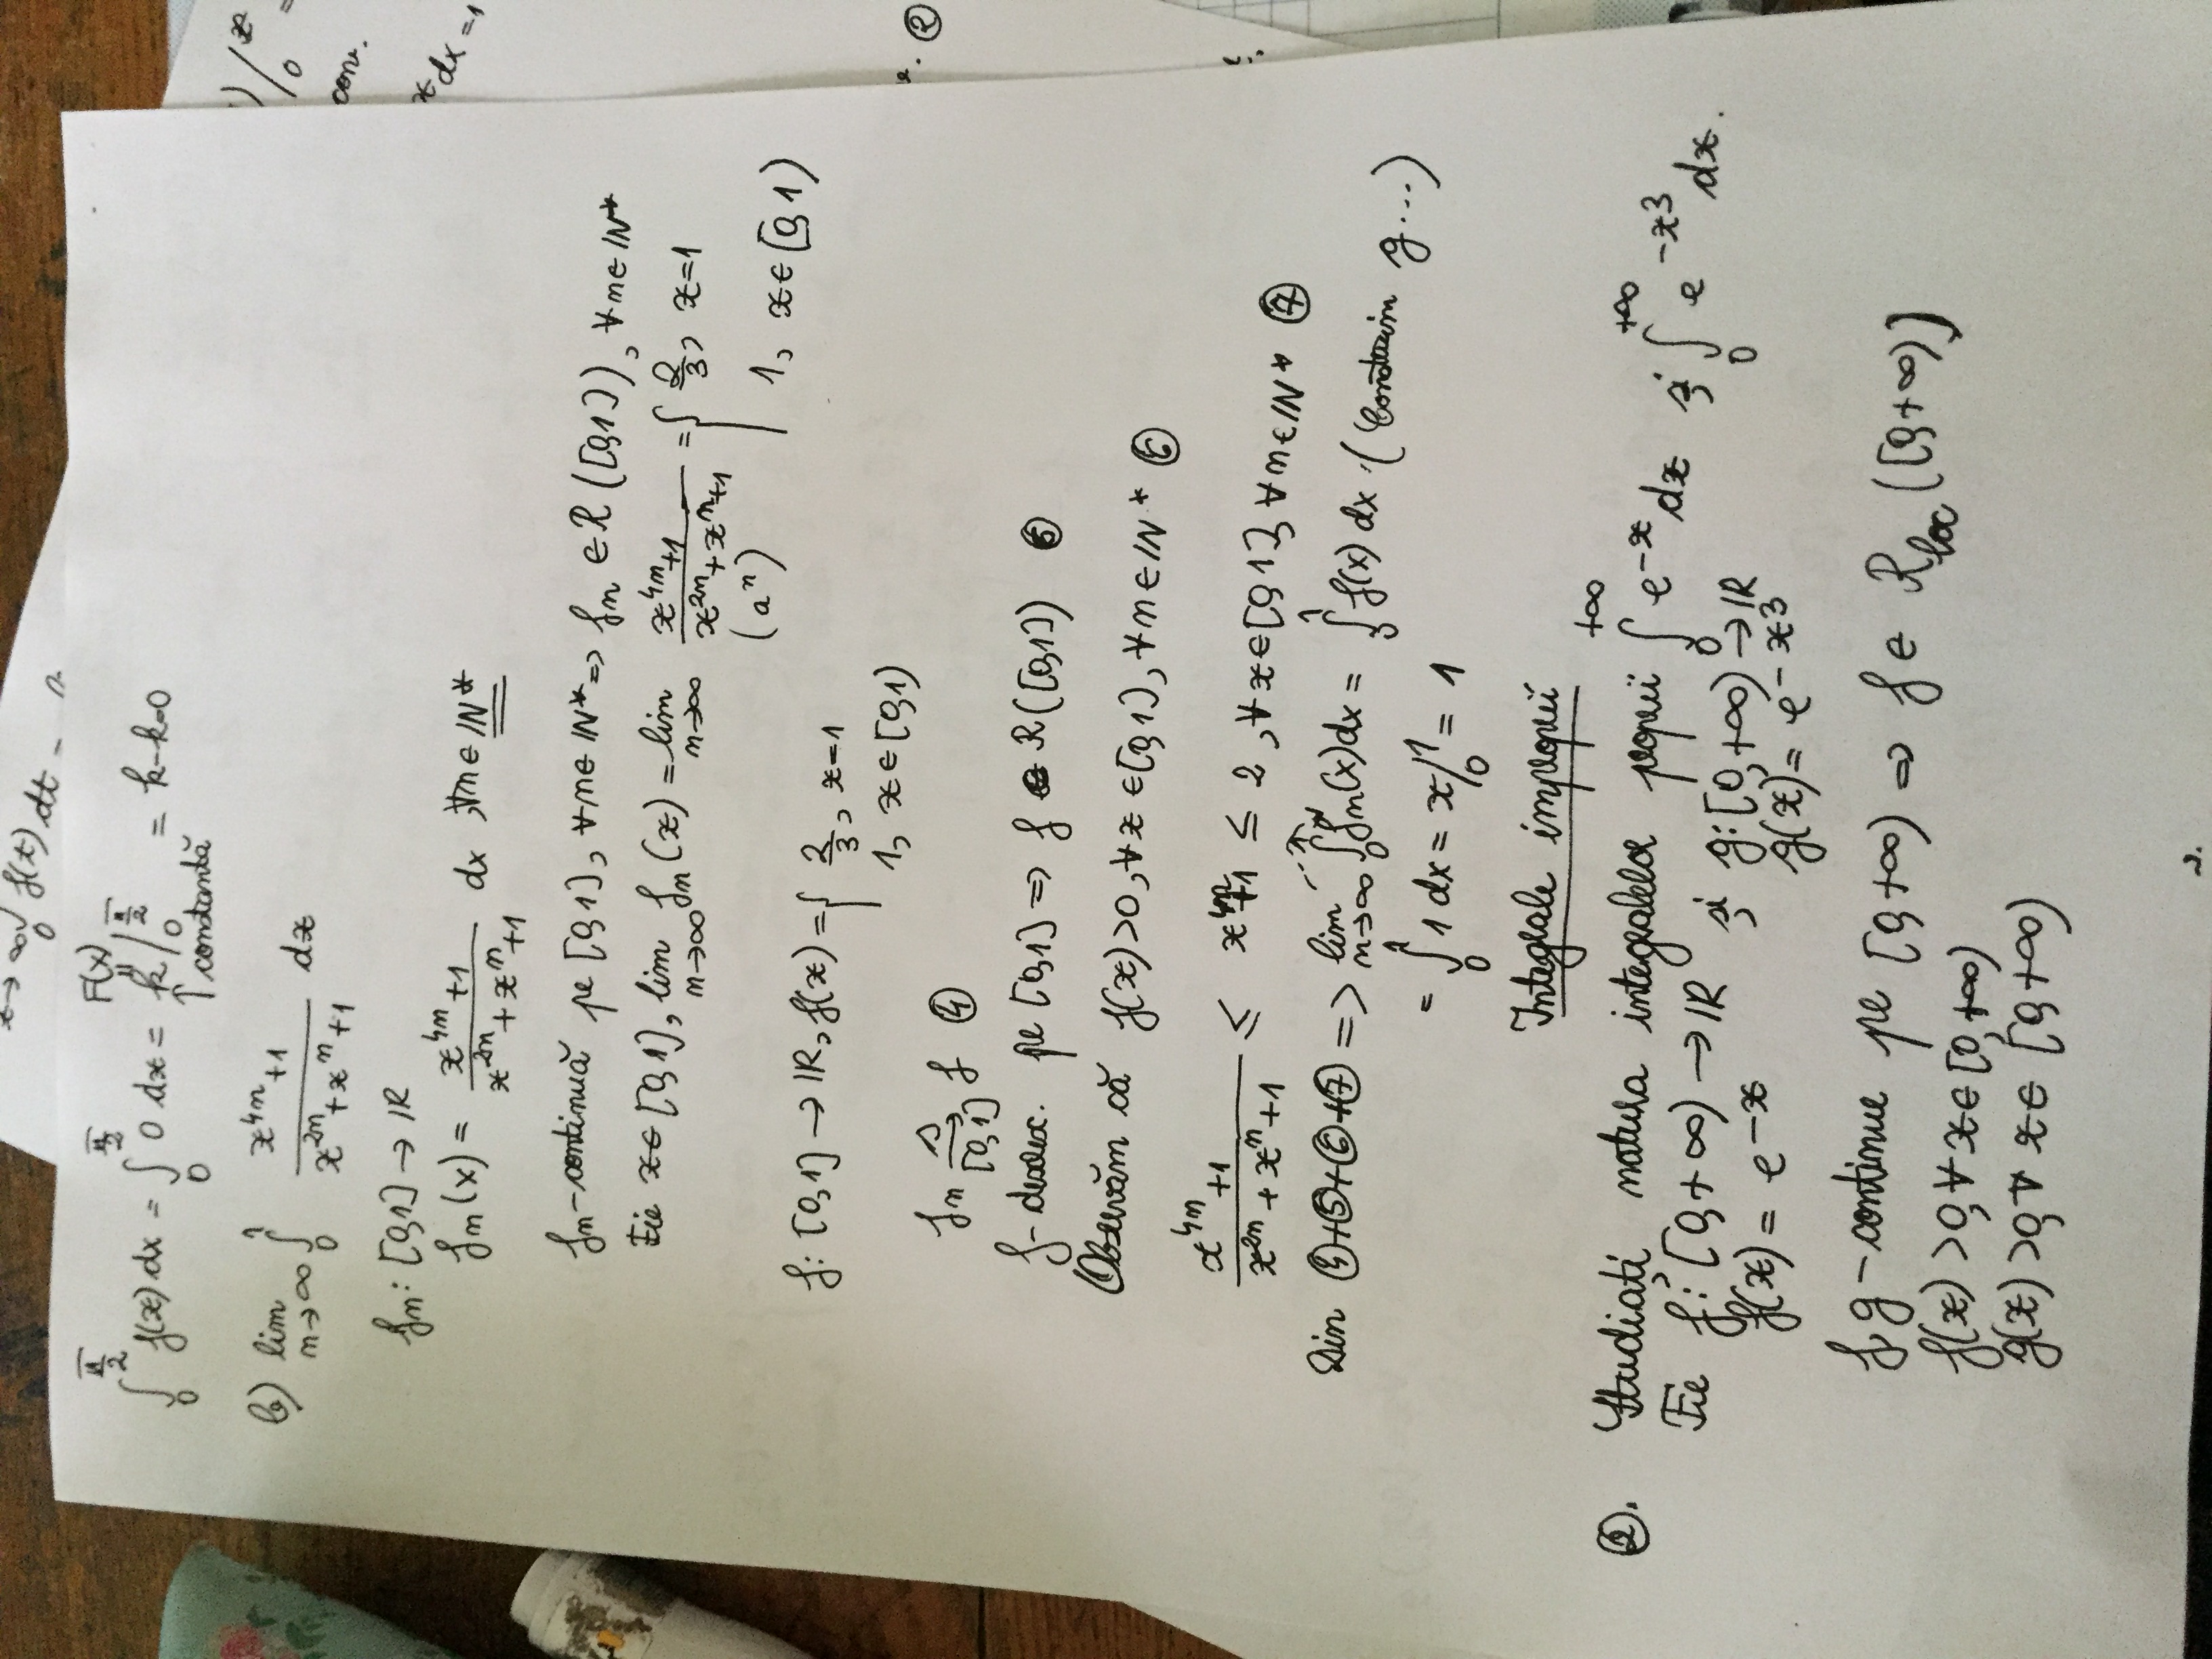 x→∞ ∫₀ f(t) dt -
∫₀^{π/2} f(x) dx = ∫₀^{π/2} 0 dx = k /₀^{π/2} = k-k=0
F(x)
↑ constantă
b) lim n→∞ ∫₀¹ (x^{4n}+1)/(x^{2n}+x^n+1) dx
fn: [0,1] → IR
fn(x) = (x^{4n}+1)/(x^{2n}+x^n+1) dx, ∀n∈ IN*
fn-continuă pe [0,1], ∀n∈ IN* => fn ∈ R([0,1]), ∀n∈ IN*
Fie x∈[0,1], lim n→∞ fn(x) = lim n→∞ (x^{4n}+1)/(x^{2n}+x^n+1) = { 2/3, x=1
(a^n) 1, x∈[0,1)
f: [0,1] → IR, f(x) = { 2/3, x=1
1, x∈[0,1)
fn →^s_{[0,1]} f ④
f- pe [0,1] => f ∈ R([0,1]) ⑤
Observăm că f(x)>0, ∀x∈[0,1], ∀n∈IN* ⑥
(x^{4n}+1)/(x^{2n}+x^n+1) ≤ x^{4n}+1 ≤ 2, ∀x∈[0,1], ∀n∈IN* ⑦
Din ④+⑤+⑥+⑦ => lim n→∞ ∫₀¹ fn(x)dx = ∫₀¹ f(x) dx (Construim g...)
= ∫₀¹ 1 dx = x/₀¹ = 1
Integrale improprii
②. Studiați natura integralelor proprii ∫₀^{+∞} e^{-x} dx și ∫₀^{+∞} e^{-x3} dx.
Fie f: [0,+∞) → IR și g: [0,+∞) → IR
f(x) = e^{-x} g(x) = e^{-x3}
f, g - continue pe [0,+∞) => f∈ R_{loc}([0,+∞))
f(x) >0, ∀ x∈ [0,+∞)
g(x) >0, ∀ x∈ [0,+∞)
2.
) /₀^x =
conv.
x dx = 1
②